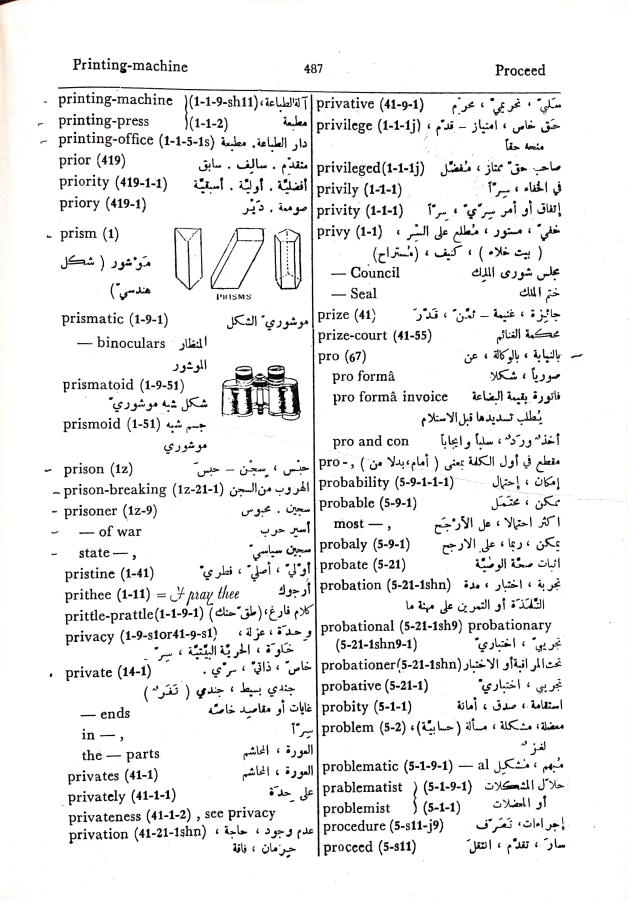 Printing-machine 487 Proceed
printing-machine }(1-1-9-sh11) آلة الطباعة،
printing-press }(1-1-2) مطبعة
printing-office (1-1-5-1s) دار الطباعة. مطبعة
prior (419) متقدّم . سالف . سابق
priority (419-1-1) أفضليّة . أوليّة . أسبقيّة
priory (419-1) صومعة . دَيْر
prism (1)
مَوْشور ( شكل
هندسيّ)
PRISMS
prismatic (1-9-1) موشوريّ الشكل
— binoculars المنظار
الموشور
prismatoid (1-9-51)
شكل شبه موشوريّ
prismoid (1-51) جسم شبه
موشوري
prison (1z) حبْس ، سِجْن – حبَس
prison-breaking (1z-21-1) الهروب من السجن
prisoner (1z-9) سجين . محبوس
— of war أسير حرب
state — , سجين سياسيّ
pristine (1-41) أوّليّ ، أصليّ ، فطريّ
prithee (1-11) = I pray thee أرجوك
prittle-prattle(1-1-9-1) كلام فارغ، (طقّ حنك)
privacy (1-9-s1or41-9-s1) وحدَة ، عزلة ،
خَلوَة ، الحريّة البيْتيّة ، سِرّ
private (14-1) خاصّ ، ذاتيّ ، سرّي .
جندي بسيط ، جندي ( نَفَر )
— ends غايات أو مقاصد خاصّه
in — , سِرّاً
the — parts العورة ، المحاشم
privates (41-1) العورة ، المحاشم
privately (41-1-1) على حِدَة
privateness (41-1-2) , see privacy
privation (41-21-1shn) عدم وجود ، حاجة ،
حِرمان ، فاقة
privative (41-9-1) سلبيّ ، تحريميّ ، محرّم
privilege (1-1-1j) حَق خاص ، امتياز – قدّم ،
منحه حقاً
privileged(1-1-1j) صاحب حقّ ممتاز ، مُفضّل
privily (1-1-1) في الخفاء ، سِرّاً
privity (1-1-1) إتفاق أو أمر سِرّيّ ، سِرّاً
privy (1-1) خفيّ ، مستور ، مُطلع على السِر ،
( بيت خلاء ) ، كنيف ، (مُستراح)
— Council مجلس شورى الملِك
— Seal ختم الملك
prize (41) جائزة ، غنيمة – ثمّن ، قدّرَ
prize-court (41-55) محكمة الغنائم
pro (67) بالنيابة ، بالوكالة ، عن
pro formâ صورياً ، شكلا
pro formâ invoice فاتورة بقيمة البضاعة
يُطلب تسديدها قبل الاستلام
pro and con أخذ ورَدّ ، سلباً وايجاباً
pro- , مقطع في أول الكلمة بمعنى ( أمام، بدلا من )
probability (5-9-1-1-1) إمكان ، إحتمال
probable (5-9-1) ممكن ، محْتمَل
most — , اكثر احتمالا ، على الأرْجَح
probaly (5-9-1) يمكن ، ربما ، على الارجح
probate (5-21) اثبات صحة الوصيّة
probation (5-21-1shn) تجربة ، اختبار ، مدة
التلمَذَة أو التمرين على مهنة ما
probational (5-21-1sh9) probationary
(5-21-1shn9-1) تجريبيّ ، اختباريّ
probationer(5-21-1shn) تحت المراقبة أو الاختبار
probative (5-21-1) تجريبي ، اختباريّ
probity (5-1-1) استقامة ، صدق ، أمانة
problem (5-2) معضلة، مشكلة ، مسألة (حسابيّة)،
لغز
problematic (5-1-9-1) — al مُبهم ، مُشكِل
prablematist } (5-1-9-1) حلاّل المشكلات
problemist } (5-1-1) أو المعضلات
procedure (5-s11-j9) إجراءات، تَصَرّف
proceed (5-s11) سارَ ، تقدّم ، انتقلَ